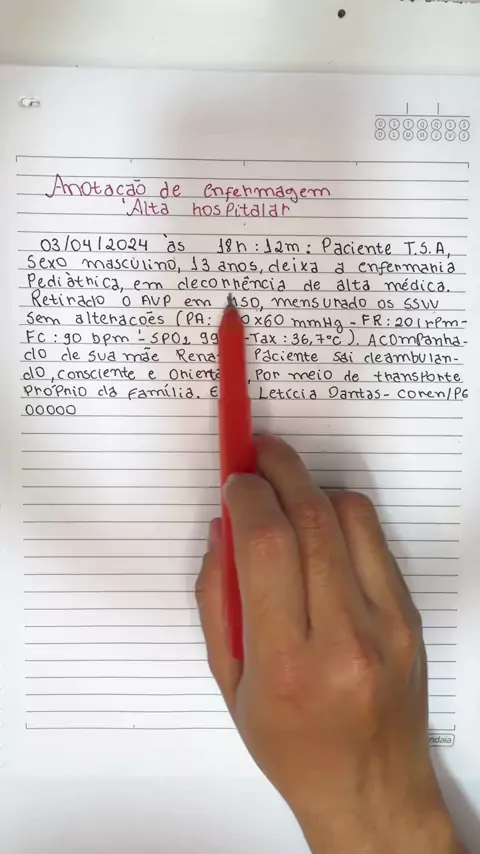 Anotação de enfermagem
Alta hospitalar
03/04/2024 às 18h:12m: Paciente T.S.A,
sexo masculino, 13 anos, deixa a enfermaria
Pediàtrica, em decorrência de alta médica.
Retirado o AVP em MSD, mensurado os SSVV
sem alterações (PA: 0x60 mmHg - FR: 20 irpm-
FC: 90 bpm - SPO2 99 -Tax: 36,7°C). Acompanha-
do de sua mãe Rena Paciente sai deambulan-
do, consciente e orienta , por meio de transporte
próprio da família. E Letícia Dantas- Coren/PE
00000
ndaia